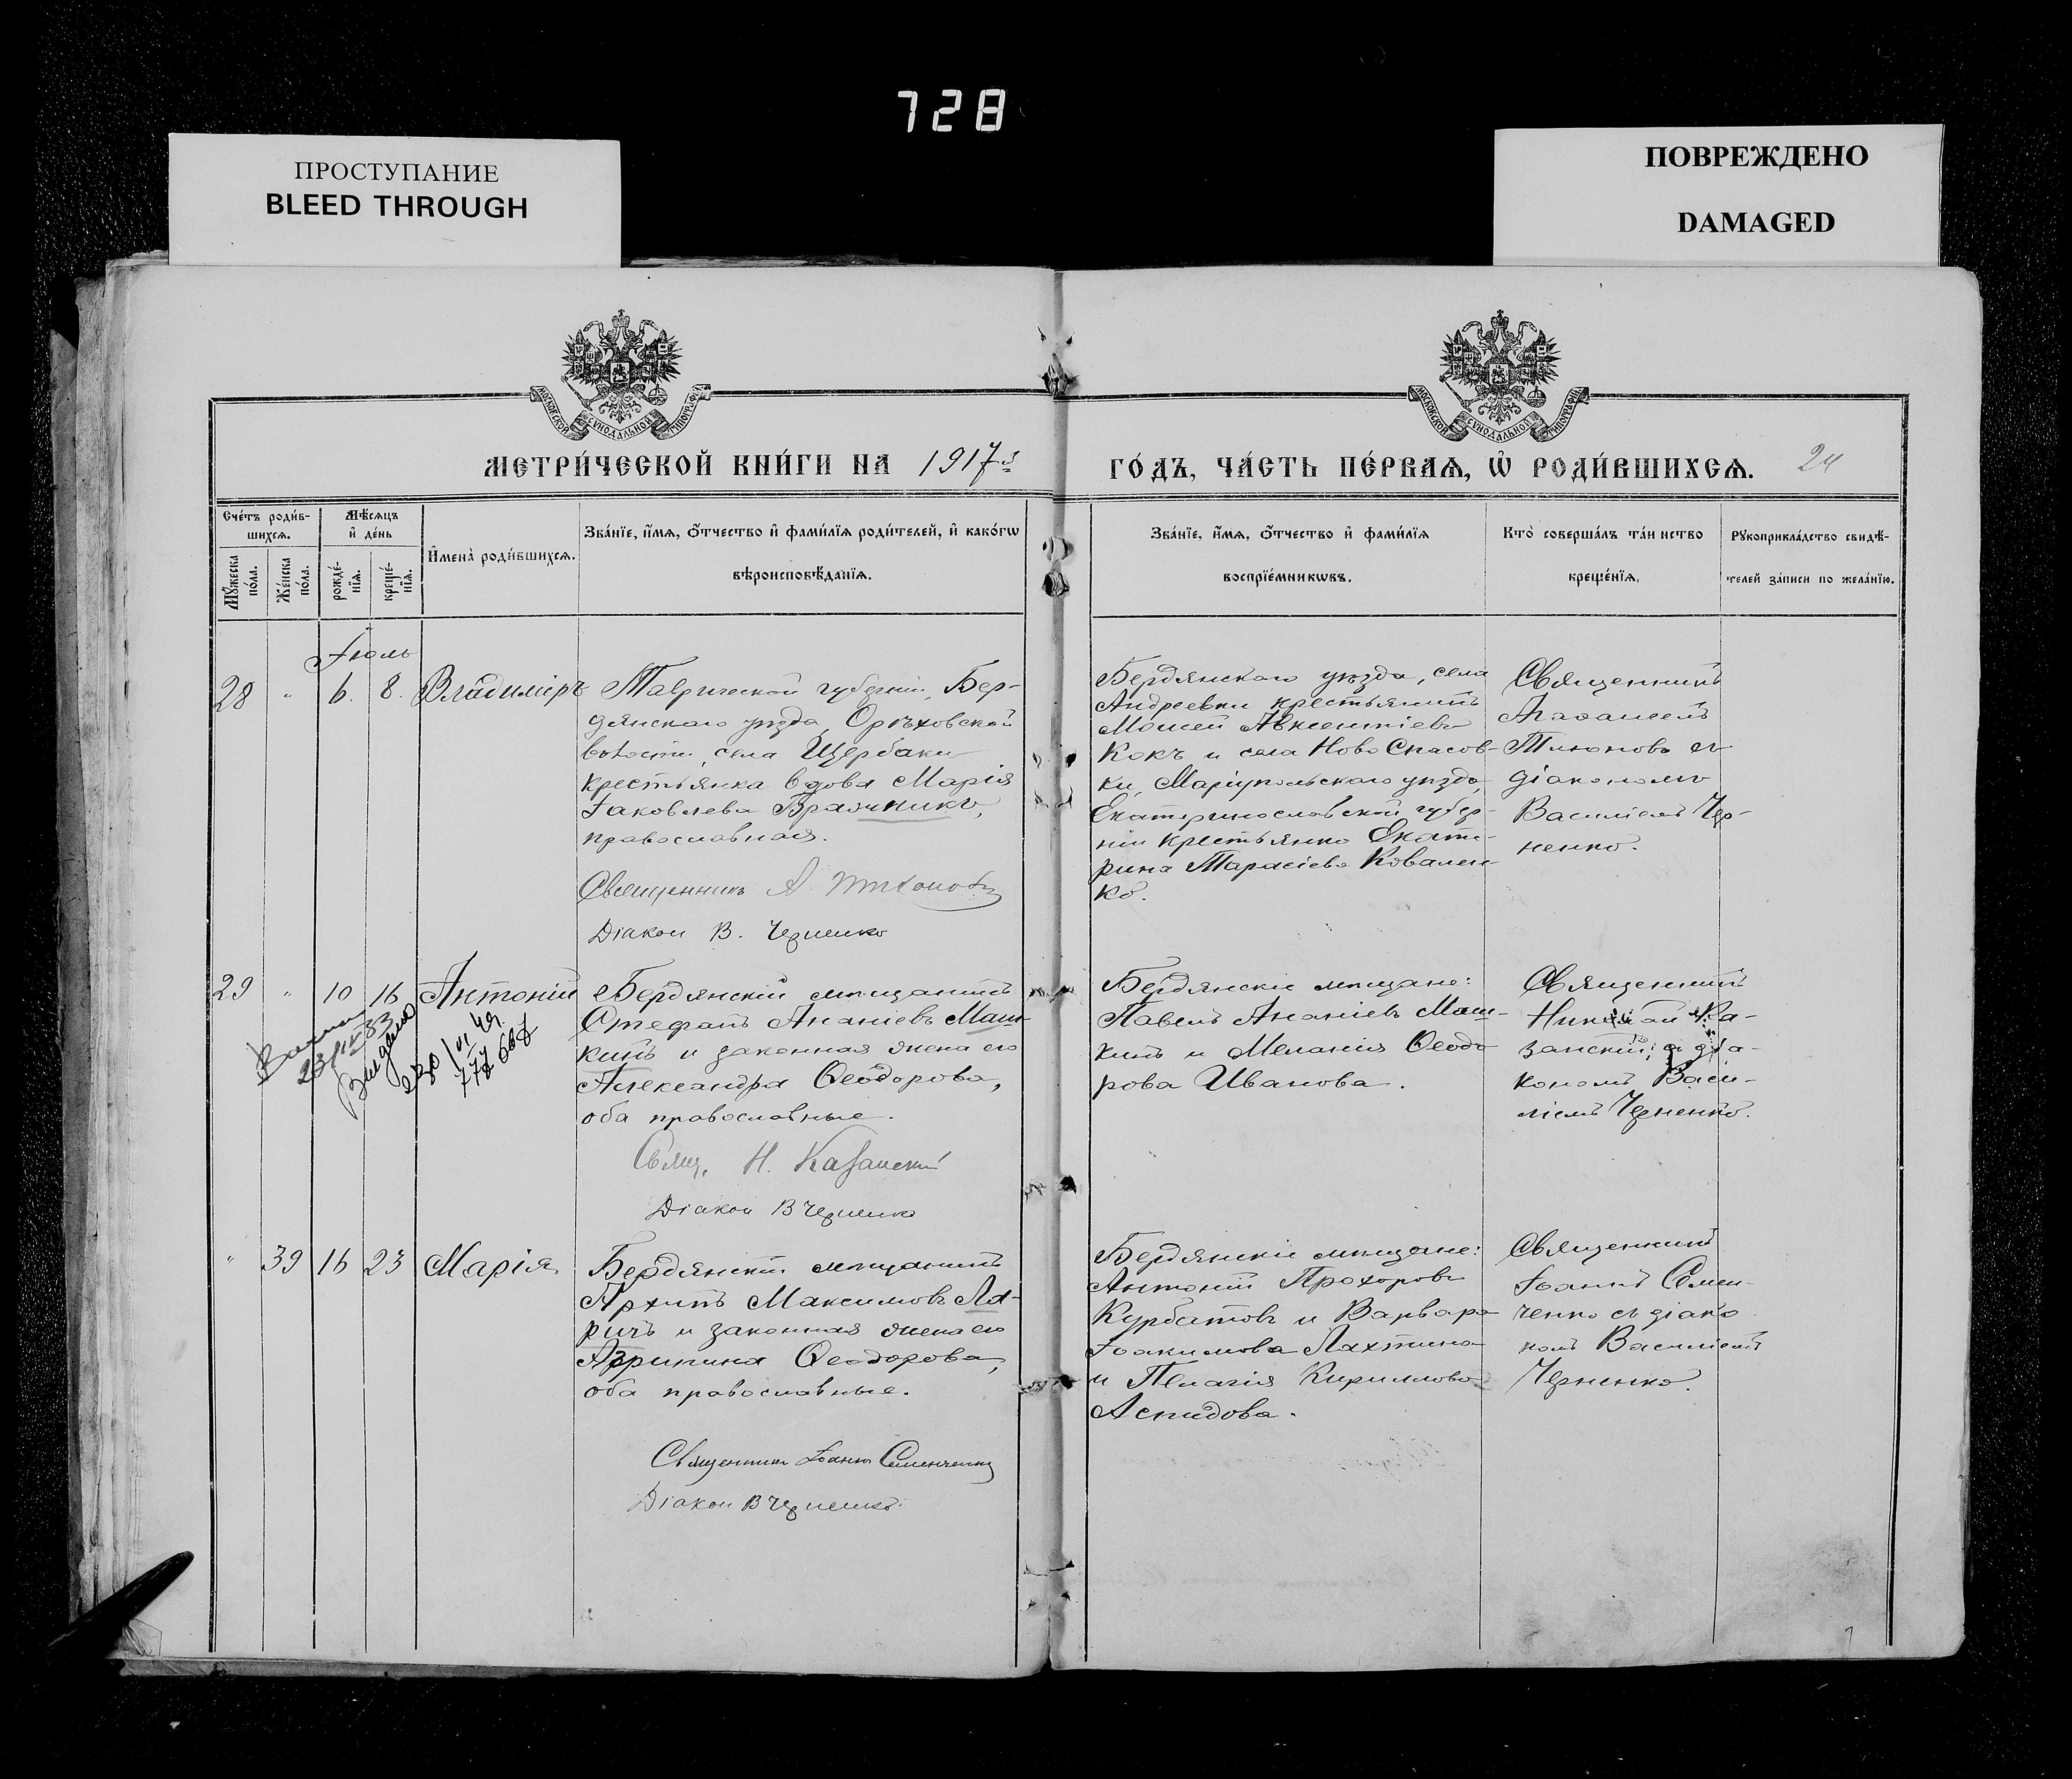 728
ПРОСТУПАНИЕ
BLEED THROUGH
ПОВРЕЖДЕНО
DAMAGED
МОСКОВСКОЙ СѴНОДАЛЬНОЙ ТИПОГРАФІИ
МОСКОВСКОЙ СѴНОДАЛЬНОЙ ТИПОГРАФІИ
МЕТРИ́ЧЕСКОЙ КНИ́ГИ НА 1917 г
ГО́ДЪ, ЧА́СТЬ ПЕ́РВАѦ, Ѡ҆ РОДИ́ВШИХСѦ. 24
Сче́тъ роди́в-
шихсѧ.
Мѣ́сѧцъ
и҆ де́нь
Мꙋ́жеска
по́ла.
Же́нска
по́ла.
рожде́-
нїѧ.
креще́-
нїѧ.
И҆мена̀ роди́вшихсѧ.
Зва́нїе, и҆́мѧ, ѻ҆́тчество и҆ фами́лїѧ роди́телей, и҆ како́гѡ
вѣроисповѣ́данїѧ.
Зва́нїе, и҆́мѧ, ѻ҆́тчество и҆ фами́лїѧ
воспрїе́мникѡвъ.
Кто̀ соверша́лъ та́инство
креще́нїѧ.
Рꙋкоприкла́дство свидѣ́-
телей за́писи по жела́нїю.
Іюль
28 " 6. 8. Владиміръ
Таврической губерніи, Бер-
дянскаго уѣзда, Орѣховской
волости, села Щербаки
крестьянка вдова Марія
Іаковлева Бражникъ,
православная.
Священникъ А. Тихоновъ
Діакон В. Черненко
Бердянскаго уѣзда, села
Андреевки крестьянинъ
Моисей Авксентіевъ
Кокъ и села Ново Спасов-
ки, Маріупольскаго уѣзда,
Екатеринославской губер-
ніи крестьянка Екате-
рина Тарасіева Ковален-
ко.
Священникъ
Агаѳангелъ
съ
діакономъ
Василіемъ Чер-
ненко.
29 " 10 16 Антоній
23/IV 33
Выдано
Бердянскій мѣщанинъ
Стефанъ Ананіевъ Маш-
кинъ и законная жена его
Александра Ѳеодорова,
оба православные.
Свящ. Н. Казанскій
Діакон В Черненко
Бердянскіе мѣщане:
Павелъ Ананіевъ Маш-
кинъ и Меланія Ѳеодо-
рова Иванова.
Священникъ
Николай Ка-
занскій, съ діа-
кономъ Васи-
ліемъ Черненко.
" 39 16 23 Марія
Бердянскій мѣщанинъ
Архипъ Максимовъ Ла-
ричъ и законная жена его
Агрипина Ѳеодорова,
оба православные.
Священникъ Іоаннъ Семенченко
Діакон В Черненко
Бердянскіе мѣщане:
Антоній Прохоровъ
Курбатовъ и Варвара
Іоакимова Лахтина
и Пелагія Кириллова
Аспидова.
Священникъ
Іоаннъ Семен-
ченко съ діако
номъ Василіемъ
Черненко.